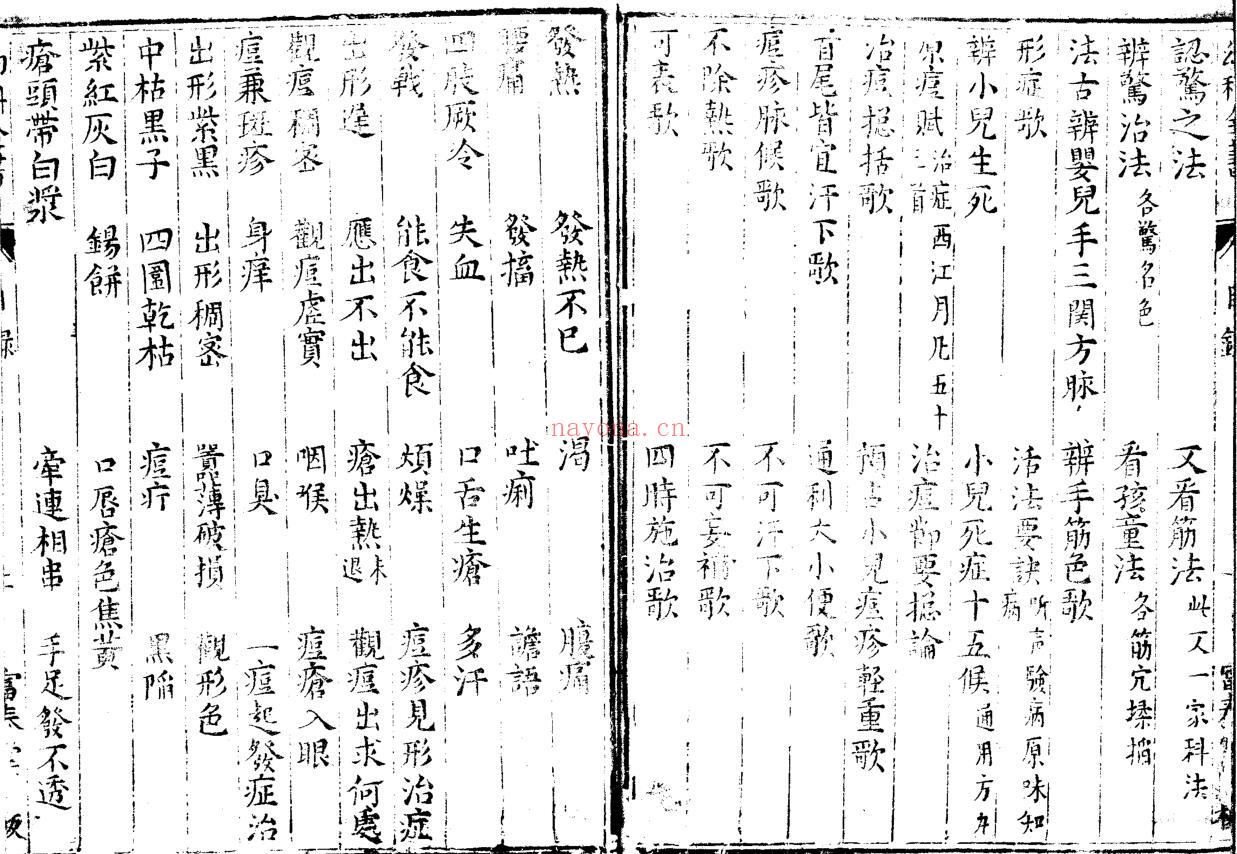 認驚之法 又看筋法 此又一家科法
辨驚治法 各驚名色 看孩童法 各筋穴揉掐
法古辨嬰兒手三関方脉 辨手筋色歌
形症歌 活法要訣 听声驗病原味知病
辨小兒生死 小兒死症十五候 通用方
原痘賦二首 治症西江月凡五十
治痘節要捴論
治痘捴括歌 小兒痘疹軽重歌
首尾皆宜汗下歌 通利大小便歌
痘疹脉候歌 不可汗下歌
不除熱歌 不可妄補歌
可表歌 四時施治歌
nayona.cn
發熱 發熱不已 渴 腹痛
腰痛 發搐 吐痢 譫語
四肢厥冷 失血 口舌生瘡 多汗
發戰 能食不能食 煩燥 痘疹見形治症
出形遲 應出不出 瘡出熱未退 觀痘出求何處
觀痘稠密 觀痘虛實 咽喉 痘瘡入眼
痘兼斑疹 身痒 口臭 一痘起發症治
出形紫黑 出形稠密 嚚薄破損 觀形色
中枯黑子 四圍乾枯 痘疔 黑陷
紫紅灰白 錫餅 口唇瘡色焦黄
瘡頭帶白漿 牽連相串 手足發不透